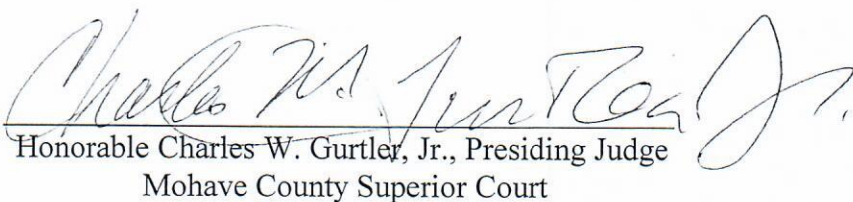 Charles W. Gurtler Jr.
Honorable Charles W. Gurtler, Jr., Presiding Judge
Mohave County Superior Court